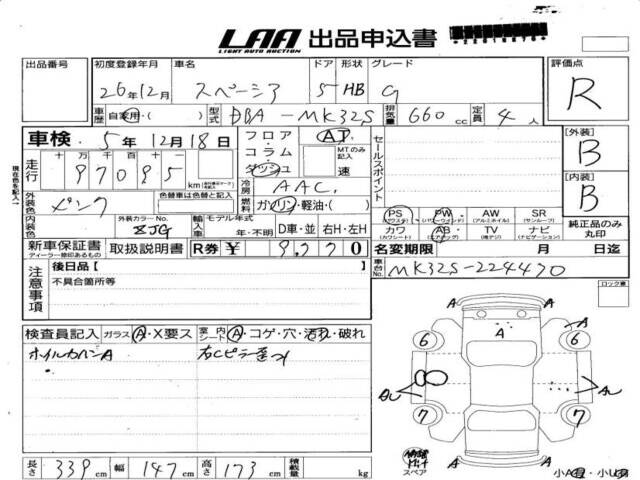 LAA 出品申込書
LIGHT AUTO AUCTION
出品番号 初度登録年月 車名 ドア 形状 グレード 評価点
26年12月 スペーシア 5 HB G R
車歴 自家用・( ) 型式 DBA-MK32S 排気量 660cc 定員 4人
車検 5年12月18日 フロア・コラム・ダッシュ AT セールスポイント [外装] B
MTのみ記入 速
走行 十万千百十一
97095 km 冷房 AAC [内装] B
現在色を記入
外装色 ピンク 色替車は色替と記入 燃料 ガソリン・軽油( )
PS (パワステ) PW (パワーウィンド) AW (アルミホイル) SR (サンルーフ) 純正品のみ丸印
内装色 外装カラーNo. ZJG 輸入車 モデル年式 年・不明 D車・並 右H・左H
カワ (カワシート) AB (エアバッグ) TV (純テレビ) ナビ (ナビゲーション)
新車保証書 取扱説明書 R券 ¥ 9,770 名変期限 月 日迄
ディーラー捺印あるもの
車台No. MK32S-224470
注意事項 後日品[ ]
不具合箇所等
ロック車
検査員記入 ガラス A・X要ス 室内シート A・コゲ・穴・汚れ・破れ
ホイルカバーA 右Cピラー歪み
A A A A
6 6
AU AU
7 7
A A A
スペア
長さ 339cm 幅 147cm 高さ 173cm 積載量 kg